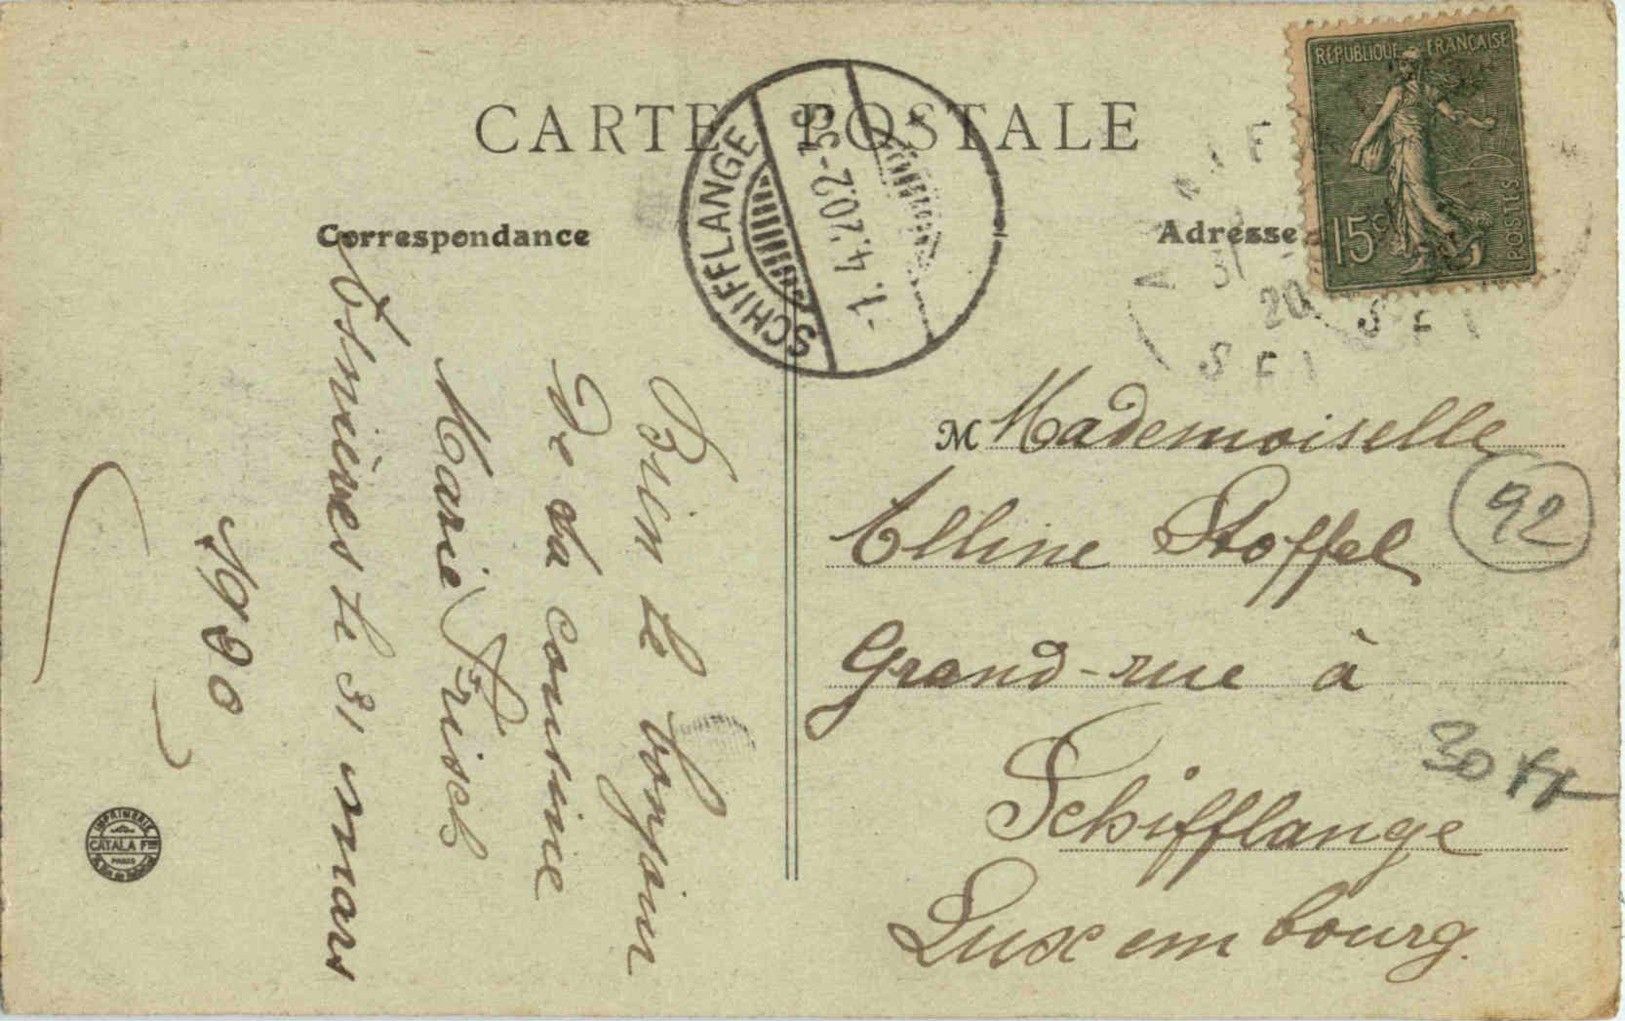 CARTE POSTALE
Correspondance
Adresse
REPUBLIQUE FRANÇAISE
15c
POSTES
SCHIFFLANGE
-1.4.20.2-3S
31
20
Bien le bonjour
De ta cousine
Marie Frisch
Asnières le 31 mars
1920
M Mademoiselle
Elline Stoffel
Grand-rue à
Schifflange
Luxembourg.
92
30
IMPRIMERIE
CATALA Frs
PARIS